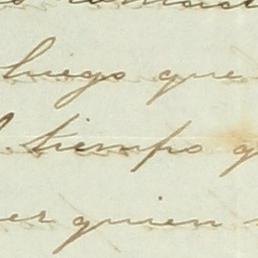 luego que
tiempo q
er quien